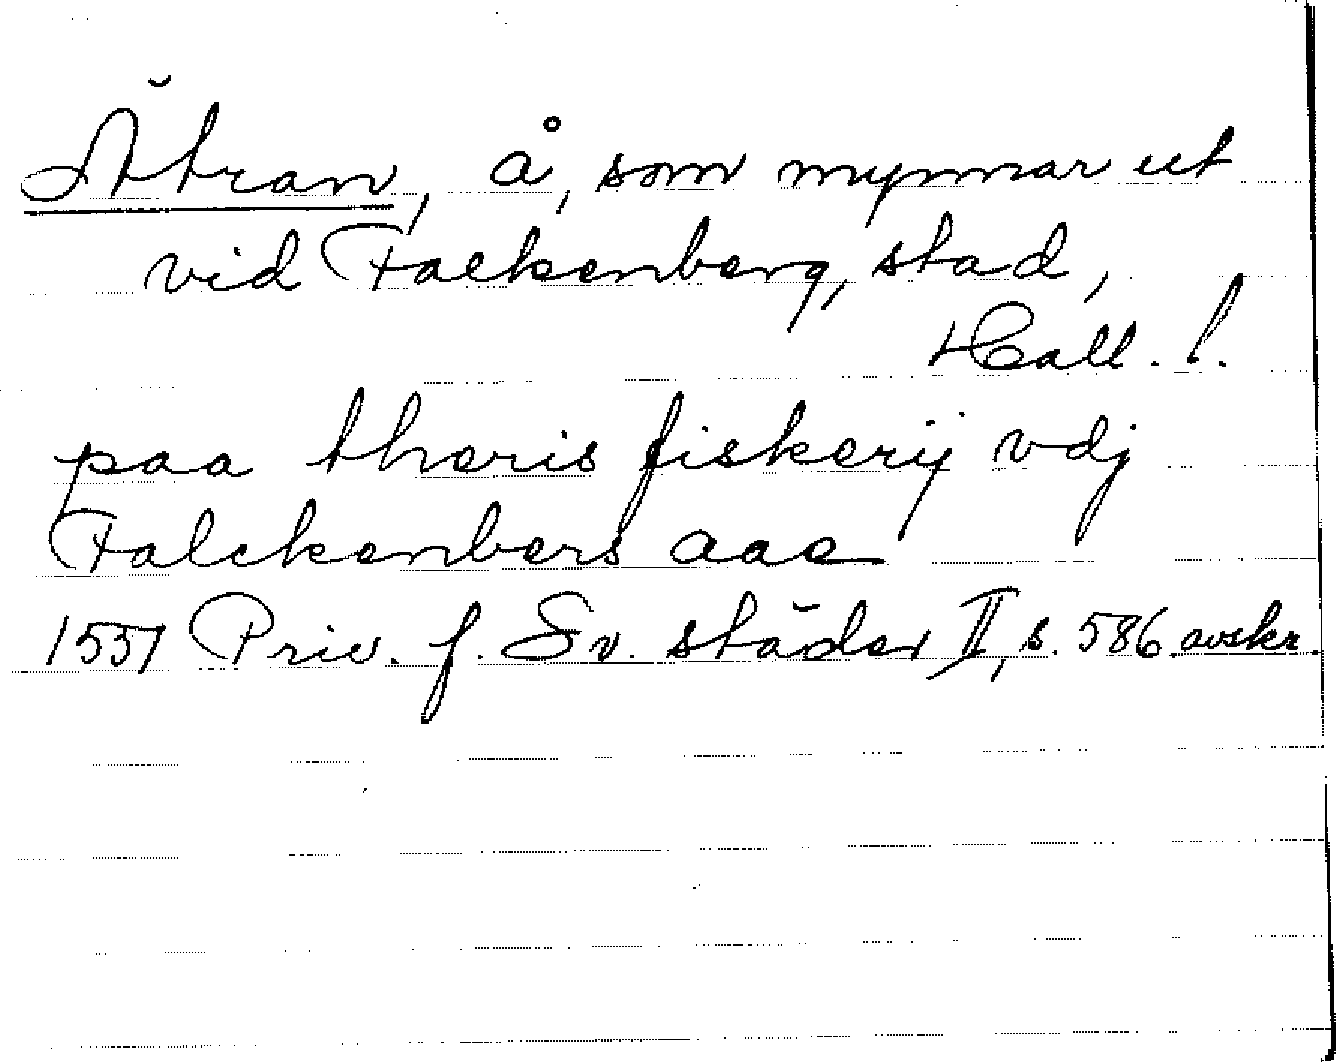 Ätran, å, som mynnar ut
vid Falkenberg, stad,
Hall. l.
paa theris fiskerij vdj
Falckenbers aae
1557 Priv. f. Sv. städer II, s. 586. avskr.